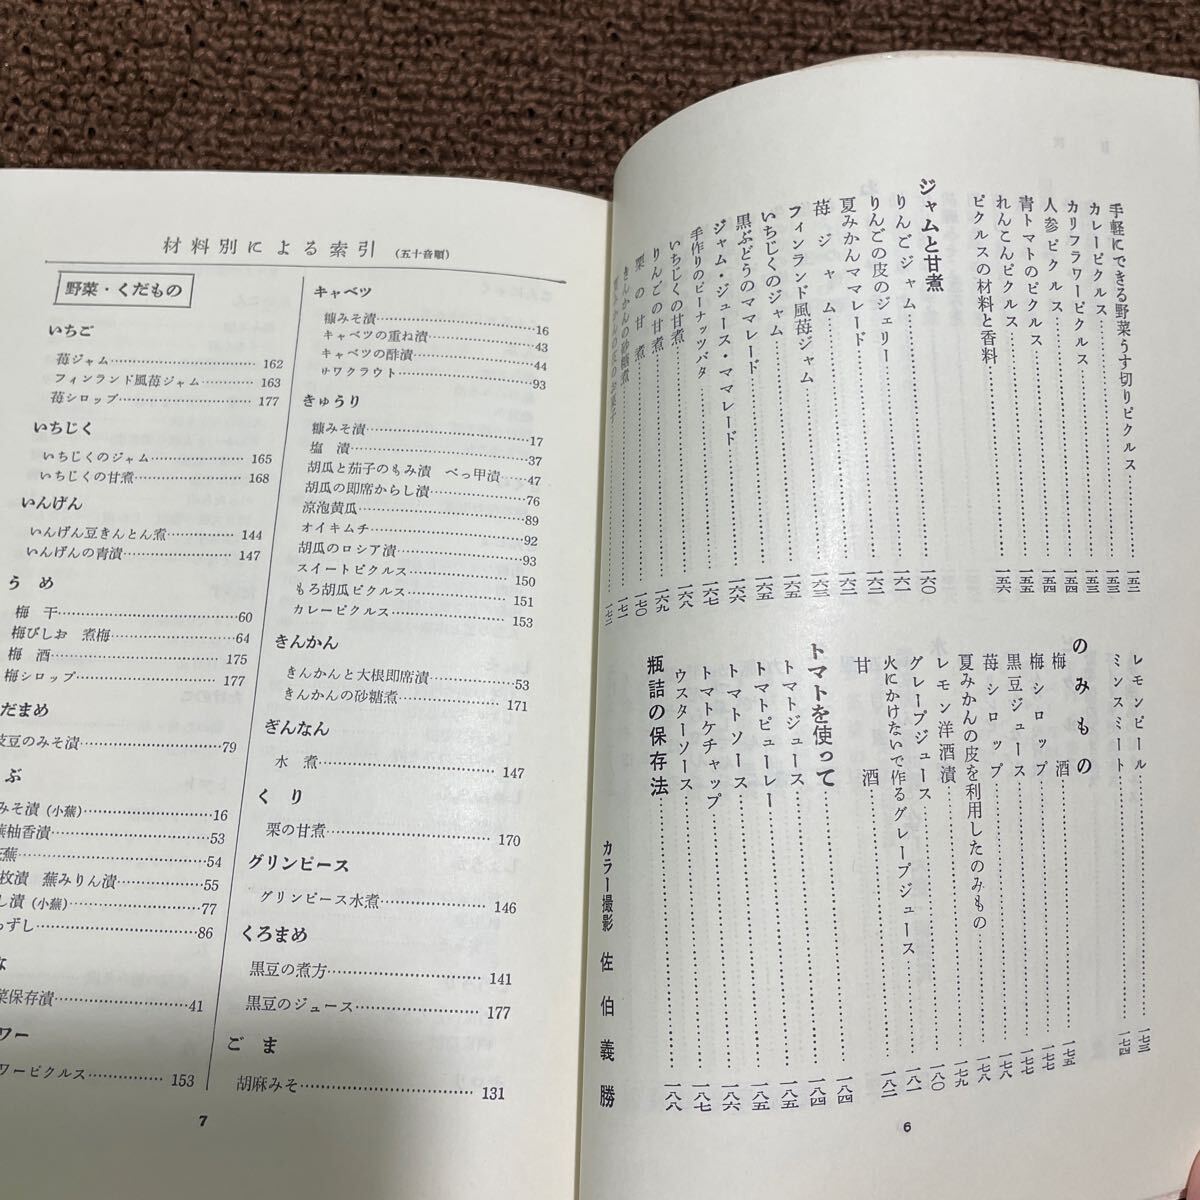 手軽にできる野菜うす切りピクルス……一五二
カレーピクルス……一五三
カリフラワーピクルス……一五三
人参ピクルス……一五四
青トマトのピクルス……一五四
れんこんピクルス……一五五
ピクルスの材料と香料……一五六
ジャムと甘煮……一六〇
りんごジャム……一六一
りんごの皮のジェリー……一六二
夏みかんママレード……一六二
苺ジャム……一六二
フィンランド風苺ジャム……一六三
いちじくのジャム……一六五
黒ぶどうのママレード……一六五
ジャム・ジュース・ママレード……一六六
手作りのピーナッツバタ……一六七
いちじくの甘煮……一六八
りんごの甘煮……一六九
栗の甘煮……一七〇
きんかんの砂糖煮……一七一
レモンピール……一七三
ミンスミート……一七四
のみもの
梅酒……一七五
梅シロップ……一七七
黒豆ジュース……一七七
苺シロップ……一七八
夏みかんの皮を利用したのみもの……一七八
レモン洋酒漬……一七九
グレープジュース……一八〇
火にかけないで作るグレープジュース……一八一
甘酒……一八二
トマトを使って……一八四
トマトジュース……一八四
トマトピューレー……一八五
トマトソース……一八五
トマトケチャップ……一八六
ウスターソース……一八七
瓶詰の保存法……一八八
カラー撮影 佐伯義勝
6
材料別による索引 (五十音順)
野菜・くだもの
いちご
苺ジャム……162
フィンランド風苺ジャム……163
苺シロップ……177
いちじく
いちじくのジャム……165
いちじくの甘煮……168
いんげん
いんげん豆きんとん煮……144
いんげんの青漬……147
うめ
梅干……60
梅びしお 煮梅……64
梅酒……175
梅シロップ……177
だまめ
枝豆のみそ漬……79
ぶ
みそ漬 (小蕪)……16
蕪柚香漬……53
蕪……54
枚漬 蕪みりん漬……55
し漬 (小蕪)……77
らずし……86
菜保存漬……41
ワー
ワーピクルス……153
キャベツ
糠みそ漬……16
キャベツの重ね漬……43
キャベツの酢漬……44
サワクラウト……93
きゅうり
糠みそ漬……17
塩漬……37
胡瓜と茄子のもみ漬 べっ甲漬……47
胡瓜の即席からし漬……76
涼泡黄瓜……89
オイキムチ……92
胡瓜のロシア漬……93
スイートピクルス……150
もろ胡瓜ピクルス……151
カレーピクルス……153
きんかん
きんかんと大根即席漬……53
きんかんの砂糖煮……171
ぎんなん
水煮……147
くり
栗の甘煮……170
グリンピース
グリンピース水煮……146
くろまめ
黒豆の煮方……141
黒豆のジュース……177
ごま
胡麻みそ……131
7